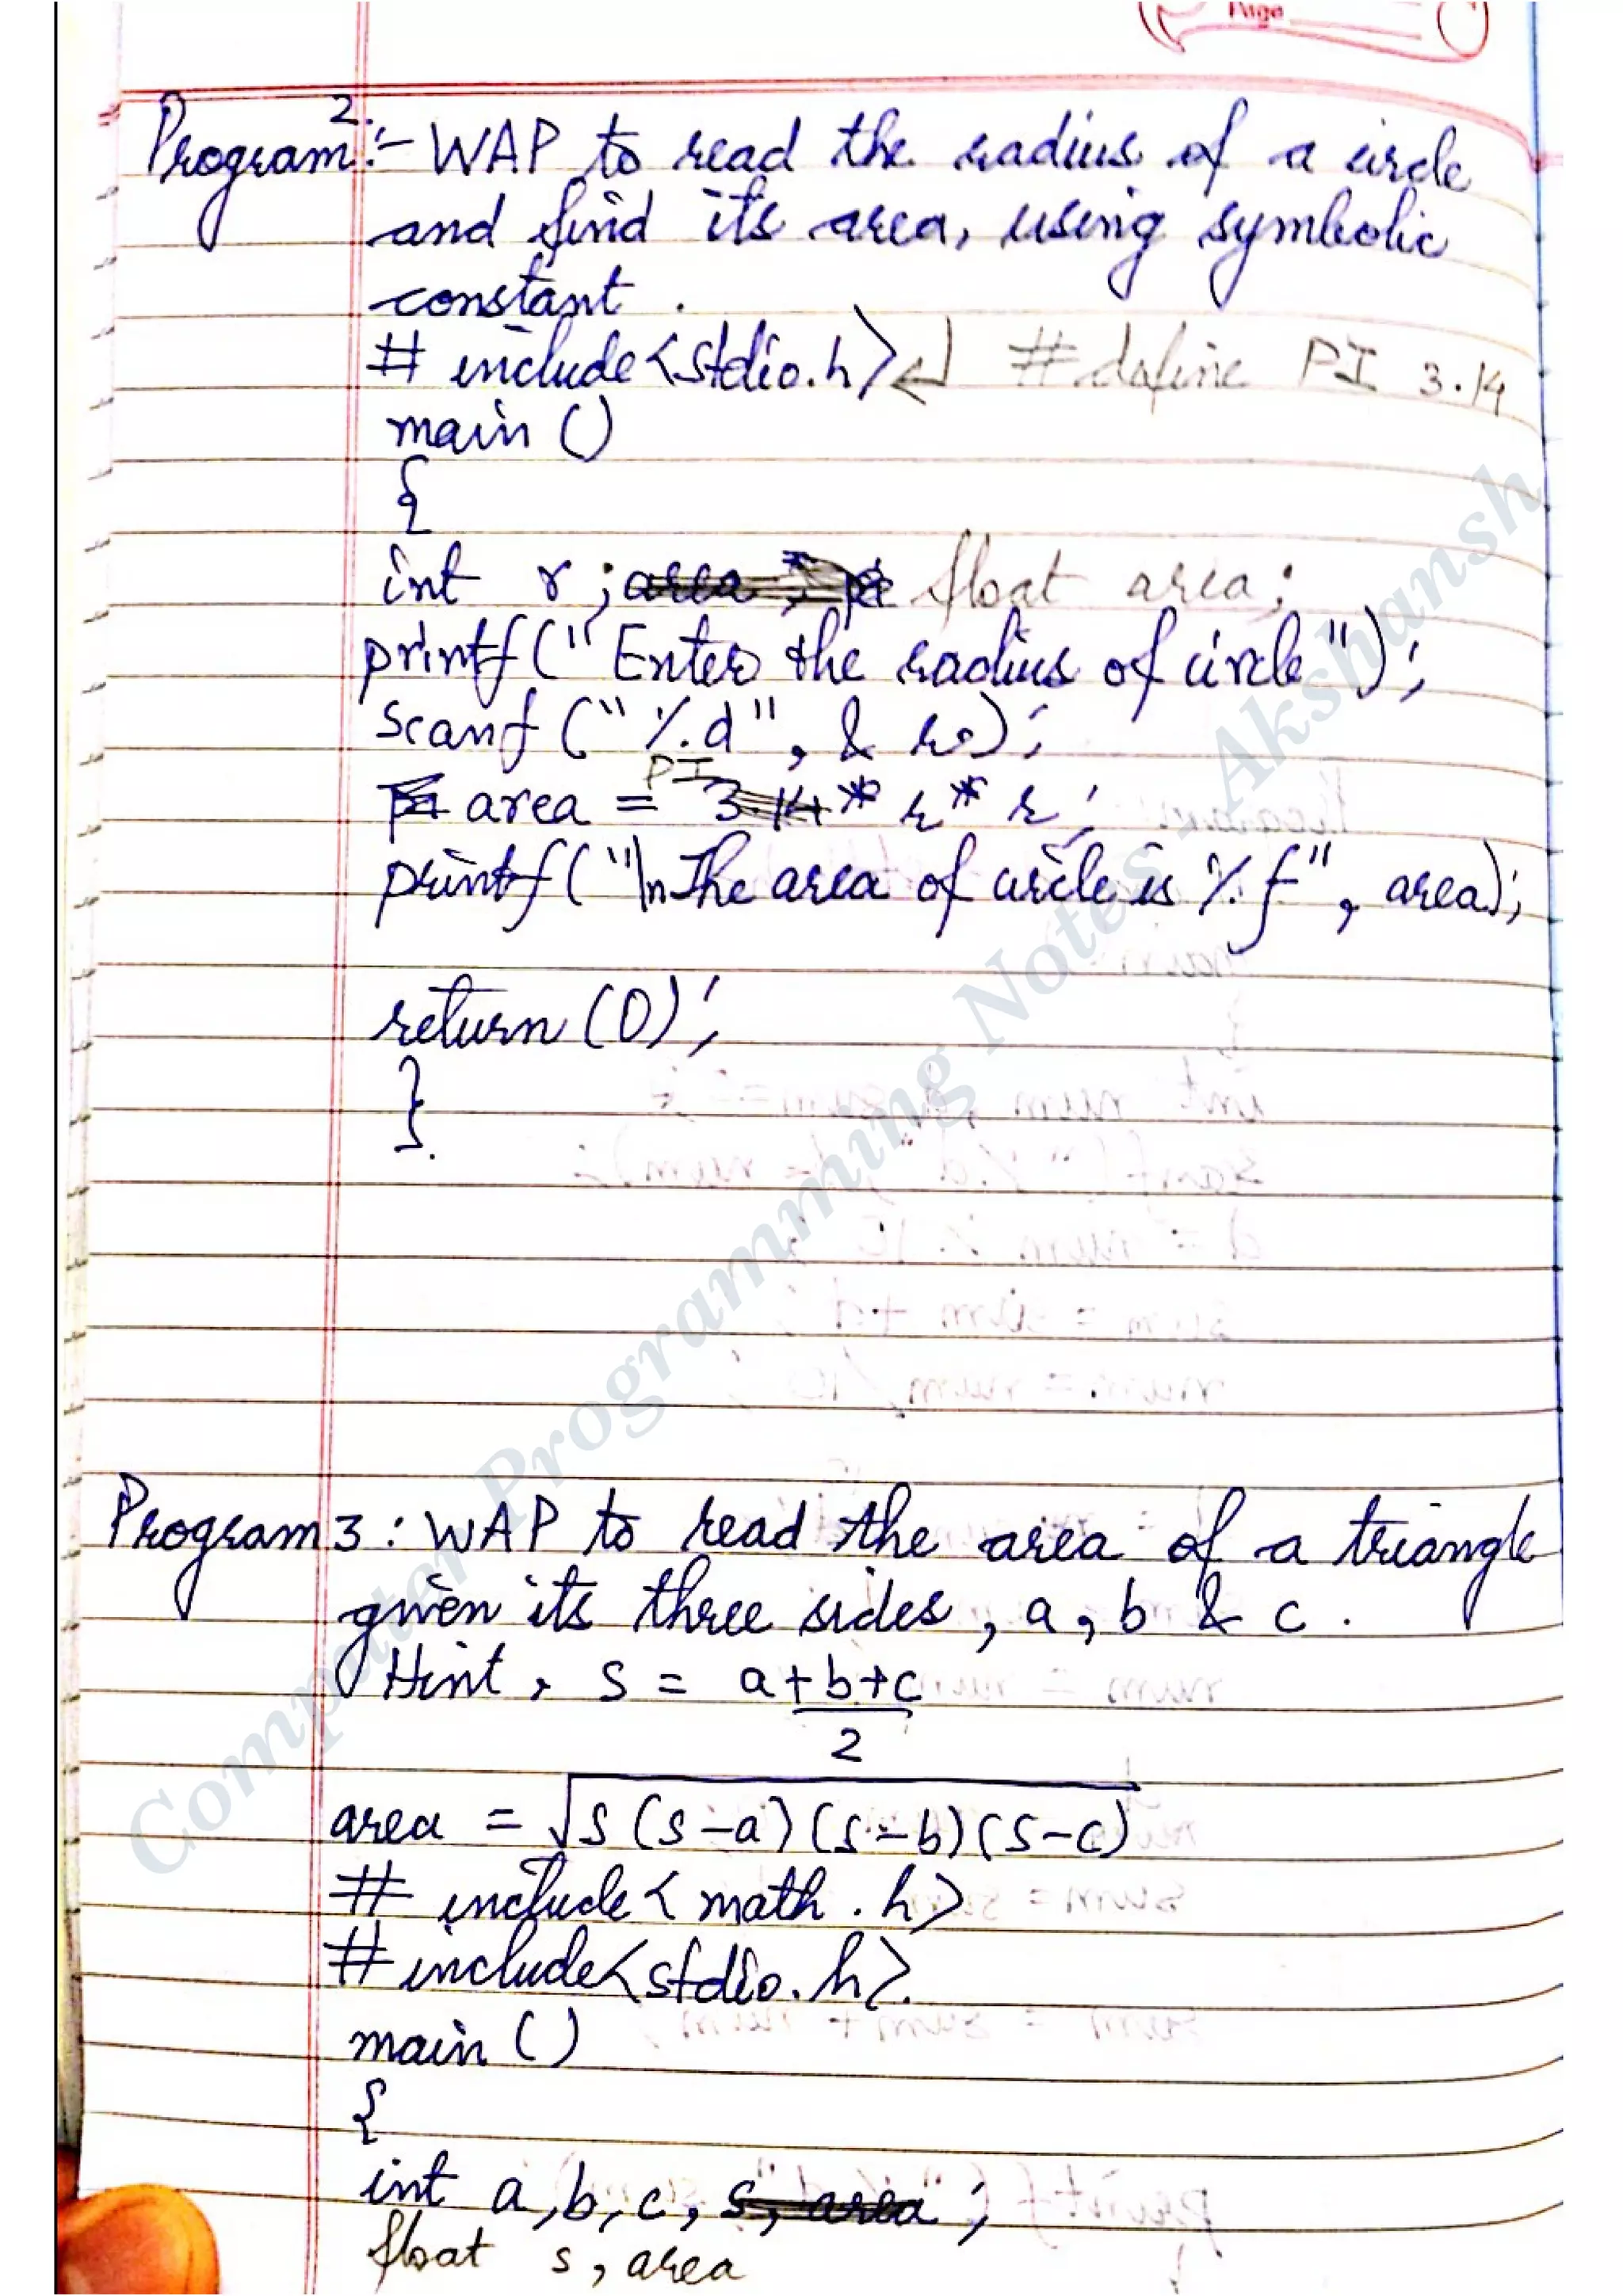 Page
Program 2:- WAP to read the radius of a circle
and find its area, using symbolic
constant.
# include<stdio.h>↵ #define PI 3.14
main ()
{
int r; float area;
printf("Enter the radius of circle");
scanf("%d", & r);
area = PI * r * r;
printf("\nThe area of circle is %f", area);
return (0);
}
Program 3: WAP to read the area of a triangle
given its three sides, a, b & c.
Hint, s = a+b+c
2
area = √s(s-a)(s-b)(s-c)
# include< math.h>
#include<stdio.h>
main ()
{
int a, b, c, ;
float s, area
Computer Programming Notes - Akshansh